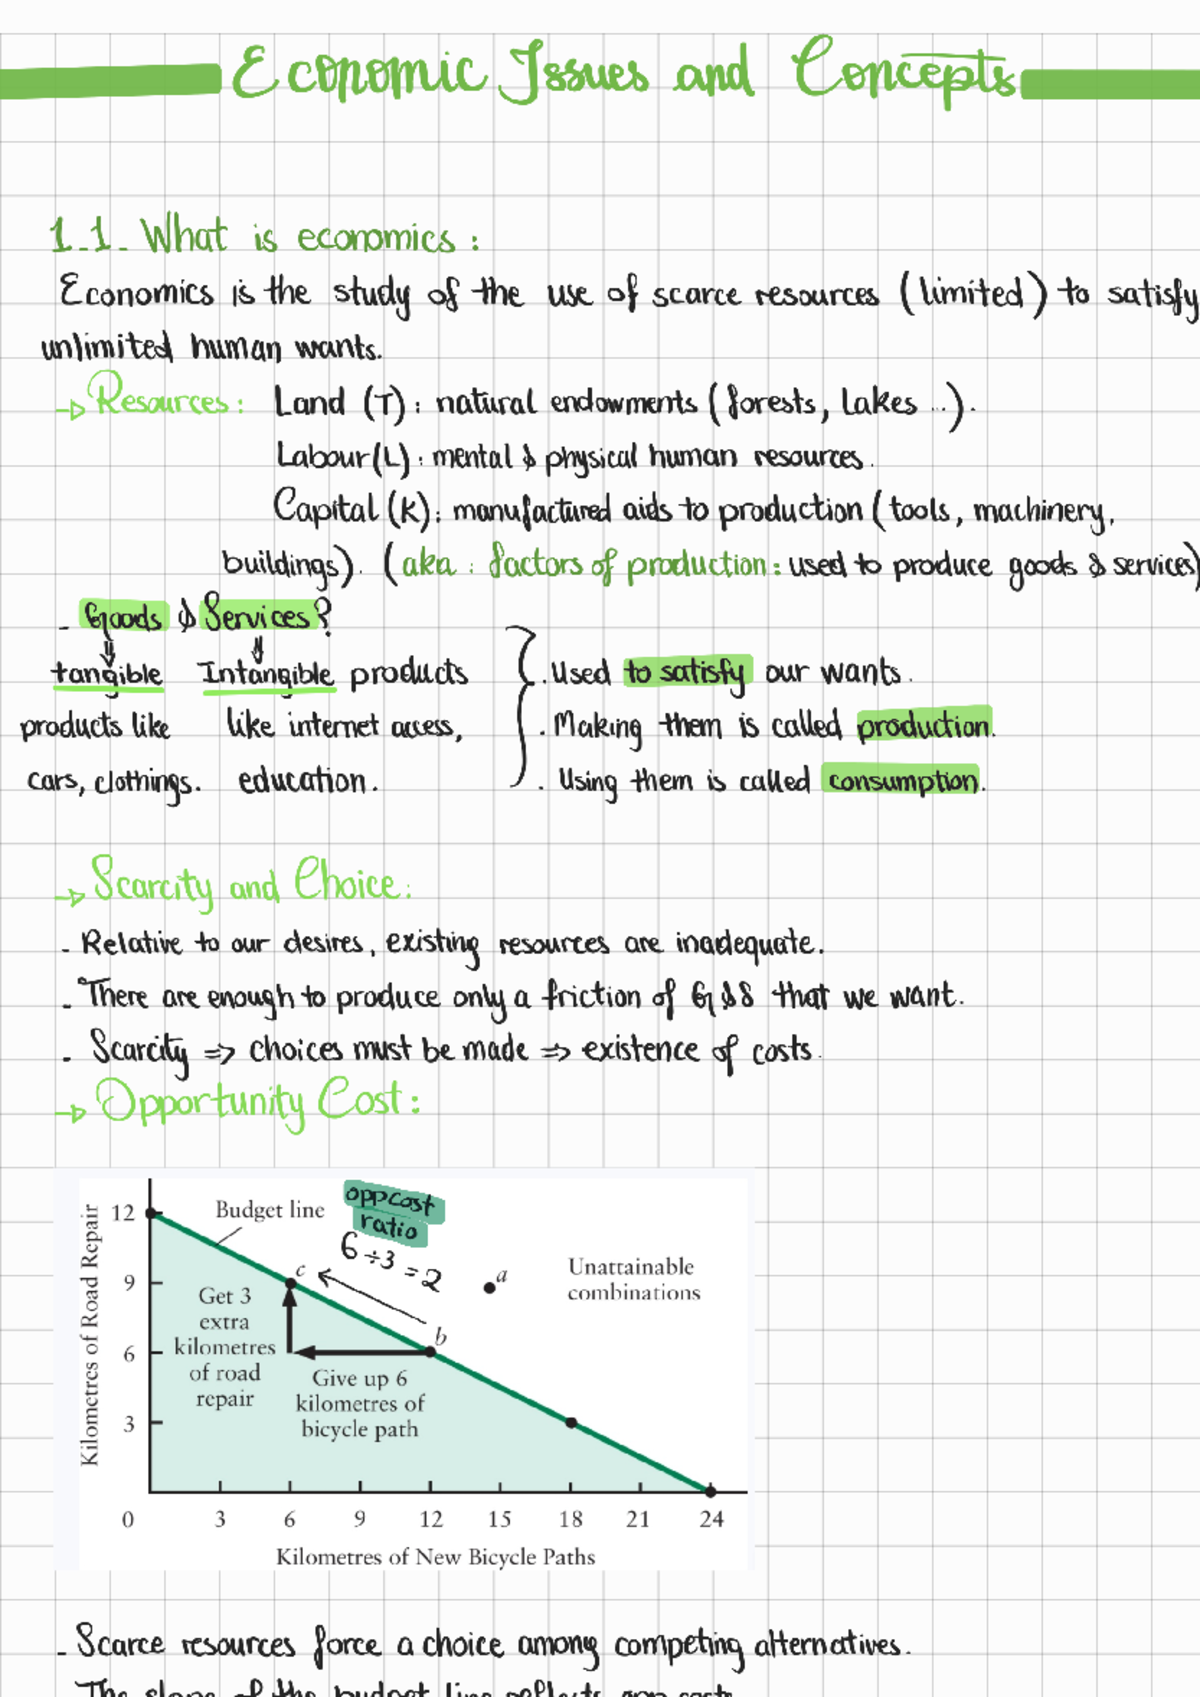 Economic Issues and Concepts
1.1. What is economics :
Economics is the study of the use of scarce resources (limited) to satisfy
unlimited human wants.
→ Resources : Land (T) : natural endowments (forests, lakes ...).
Labour (L) : mental & physical human resources.
Capital (K) : manufactured aids to production (tools, machinery,
buildings). (aka : factors of production : used to produce goods & services)
- Goods & Services ?
tangible Intangible products
products like like internet access,
cars, clothings. education.
. Used to satisfy our wants.
. Making them is called production.
. Using them is called consumption.
→ Scarcity and Choice :
- Relative to our desires, existing resources are inadequate.
- There are enough to produce only a friction of G&S that we want.
- Scarcity => choices must be made => existence of costs.
→ Opportunity Cost :
Kilometres of Road Repair
12
9
6
3
0
Budget line
opp cost
ratio
6 ÷ 3 = 2
c
a
b
Unattainable
combinations
Get 3
extra
kilometres
of road
repair
Give up 6
kilometres of
bicycle path
3 6 9 12 15 18 21 24
Kilometres of New Bicycle Paths
- Scarce resources force a choice among competing alternatives.
- The slope of the budget line reflects opp costs